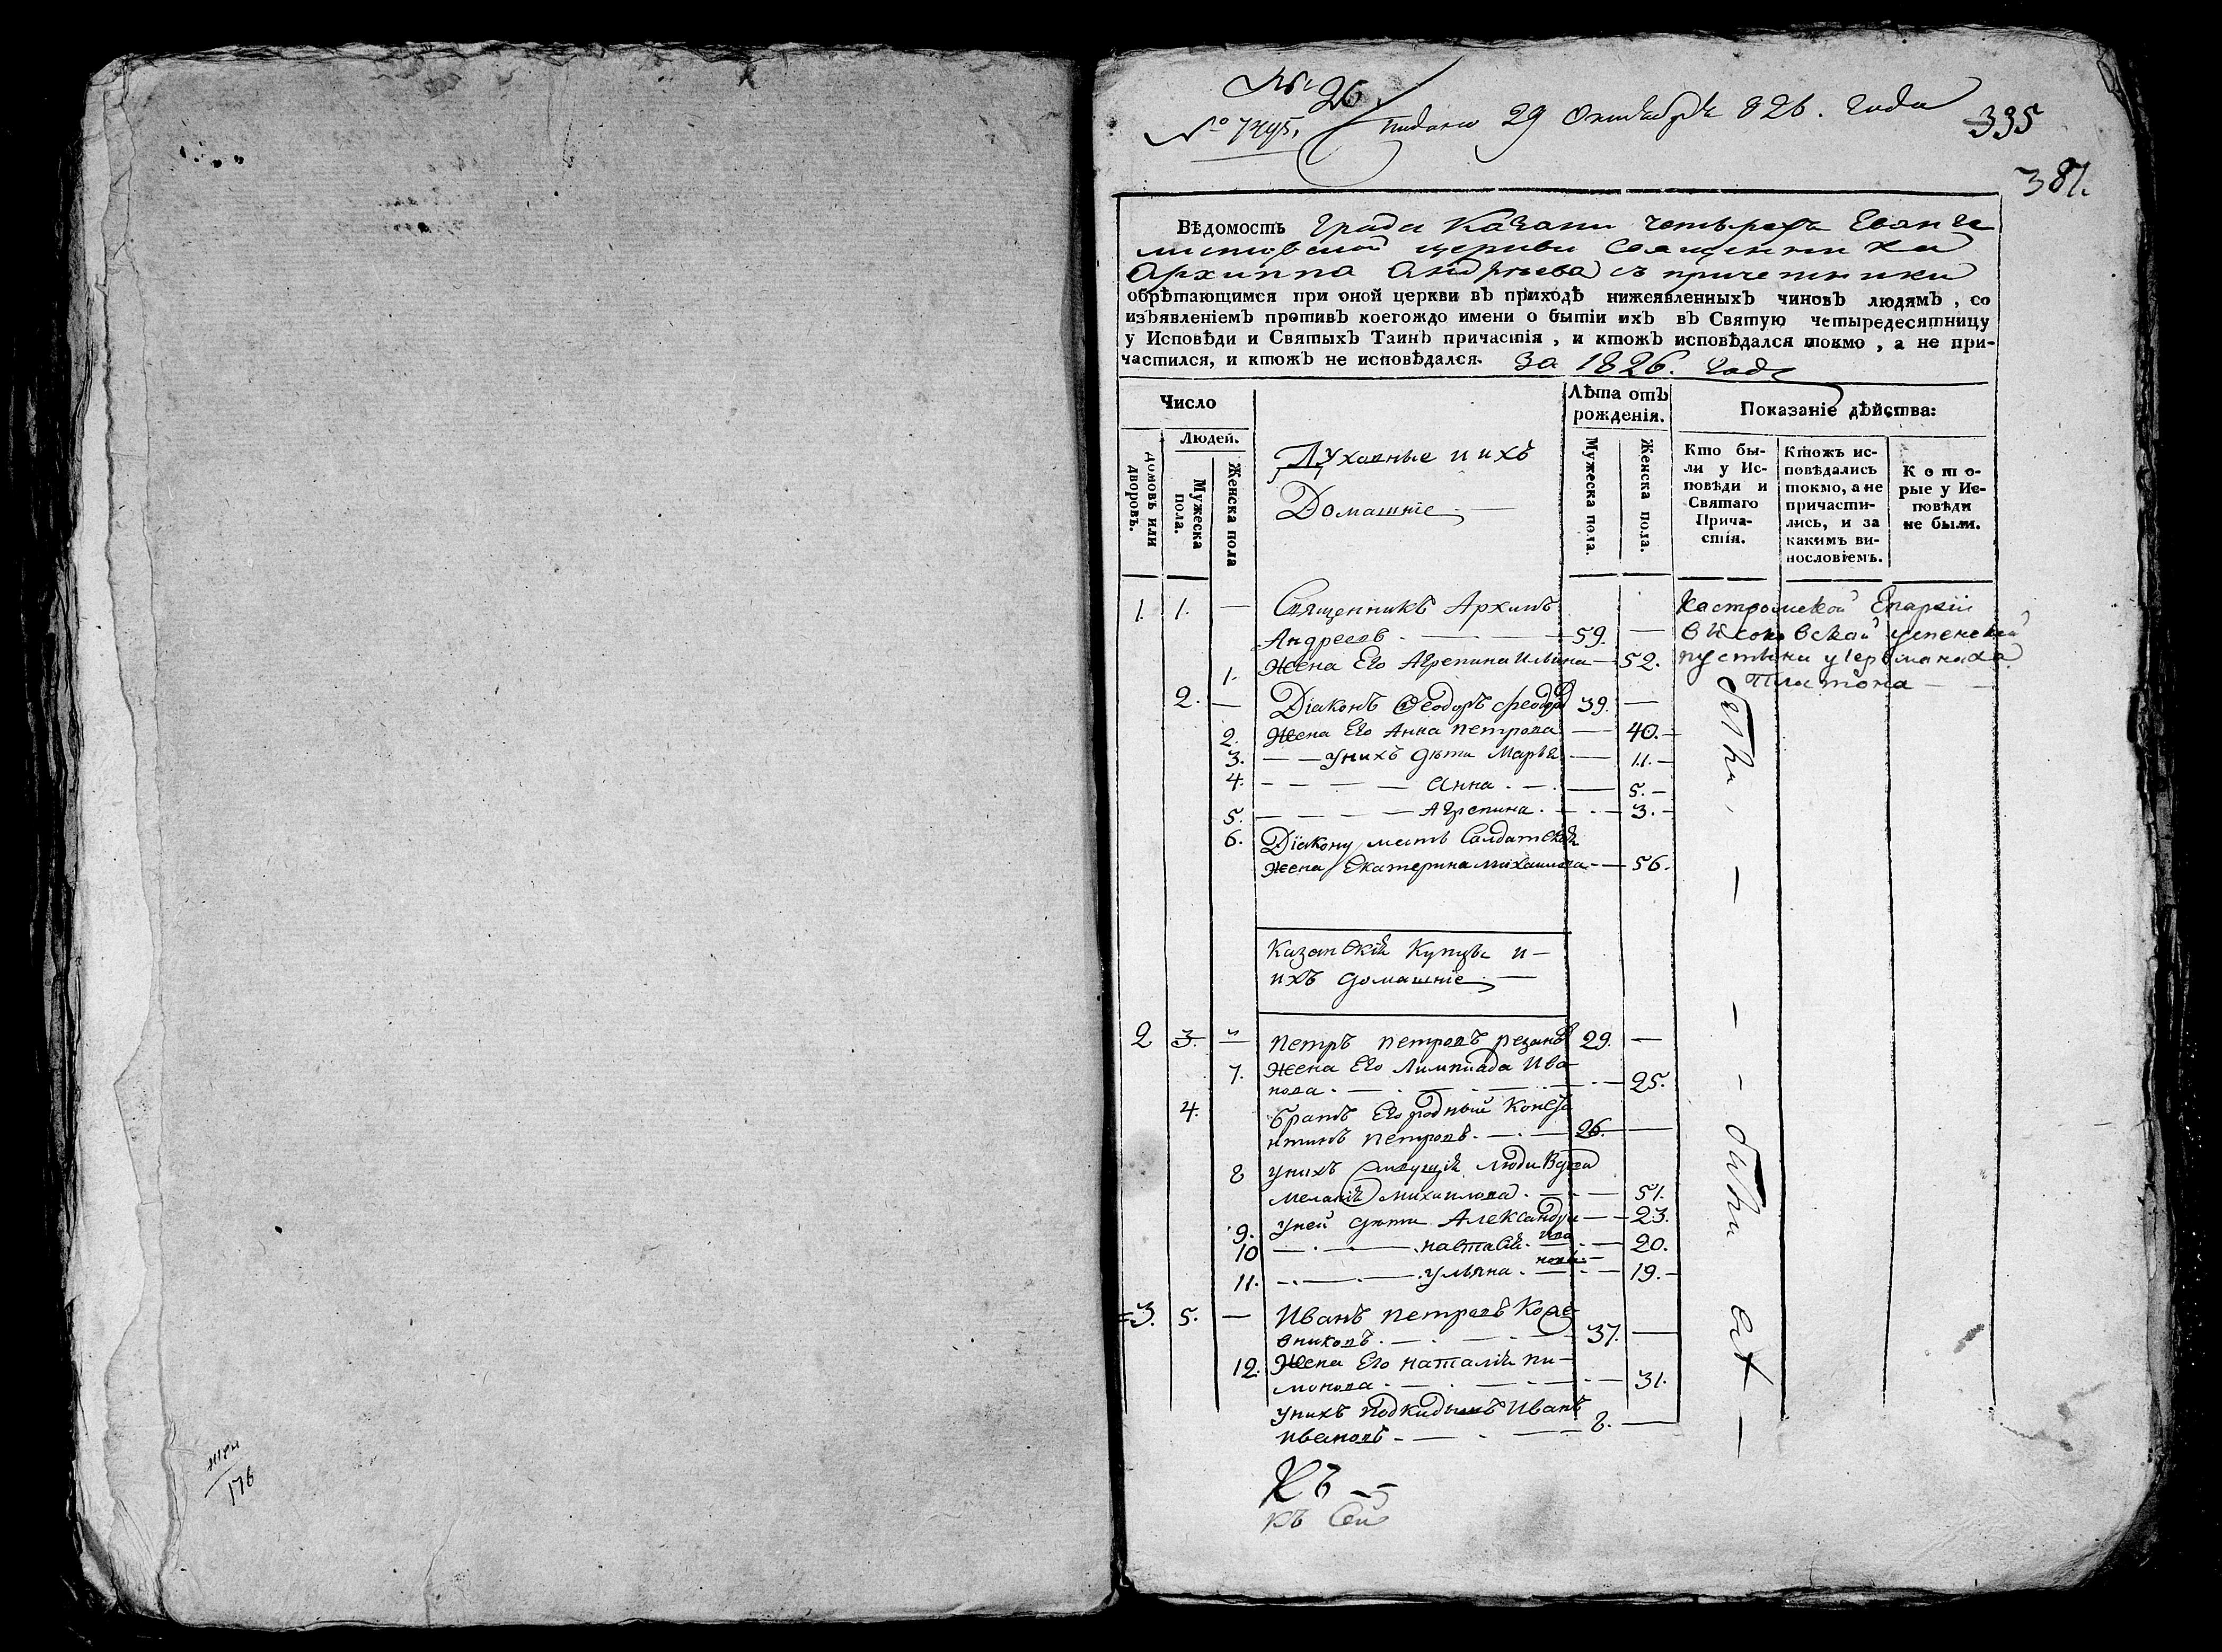 № 26.
№ 7495. Подано 29 Октября 826. года
335
381.
ВѢдомость Града Казани Четырехъ Еванге
листовской церкви Священника
Архиппа Андреева съ причетники
обрѣтающимся при оной церкви въ приходѣ нижеявленныхъ чиновъ людямъ, со
изъявленіемъ противъ коегождо имени о бытіи ихъ въ Святую четыредесятницу
у Исповѣди и Святыхъ Таинъ причастія, и ктожъ исповѣдался токмо, а не при-
частился, и ктожъ не исповѣдался. За 1826. Годъ
Число
Лѣта отъ
рожденія.
Показаніе дѣйства:
Людей.
домовъ или
дворовъ.
Мужеска
пола.
Женска пола
Духовные и ихъ
Домашніе. —
Мужеска пола.
Женска пола.
Кто бы-
ли у Ис-
повѣди и
Святаго
Прича-
стія.
Ктожъ ис-
повѣдались
токмо, а не
причасти-
лись, и за
какимъ ви-
нословіемъ.
Кото-
рые у Ис-
повѣди
не были.
1. 1. — Священникъ Архипъ Костромской Епархіи
Андреевъ. — 59. — Успенской
1. Жена Его Агрепина Ильина — 52. пустыни у Іеромонаха
Платона —
2. — Діаконъ Феодоръ Феодор 39. —
2. Жена Его Анна Петрова — 40. —
3. — — У нихъ дѣти Марья — 11. —
4. — — — — Анна. — . — 5. —
5. — — — — Агрепина. — . — 3. —
6. Діакону мать Солдатская
Жена Екатерина Михаилова — — 56.
были
Казанскія Купцы и —
ихъ домашніе. —
2 3. — Петръ Петровъ Резанов 29. —
7. Жена Его Лимпиада Ива-
нова. — . — . — 25.
4. Братъ Его родный Конста
нтинъ Петровъ. — . — 26. —
8 У нихъ люди Вдова
Меланія Михаилова. — . — 51.
9. У ней дѣти Александра — — 23.
10 — . — Наталія. Ива — . — 20.
новы. —
11. — . — . Ульяна. — . — 19. —
были
3. 5. — Иванъ Петровъ Коле-
сниковъ. — . — . — 37. —
12. Жена Его Наталія Пи-
монова. — . — . — 31.
У нихъ подкидышъ Иванъ
Ивановъ — . — . — 8. —
Къ
къ Сей
176